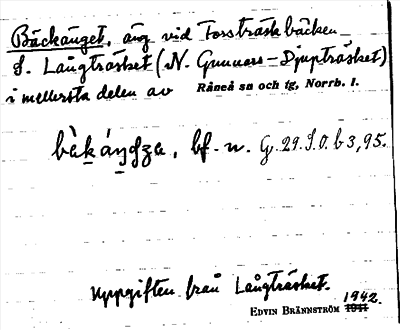 Bäckänget, äng vid Forsträskbäcken
S. Långträsket (N. Gunnars-Djupträsket)
i mellersta delen av Råneå sn och tg, Norrb. l.
bf. n. G. 29. S. O. b 3, 95.
Uppgiften från Långträsket.
1942.
EDVIN BRÄNNSTRÖM 1941